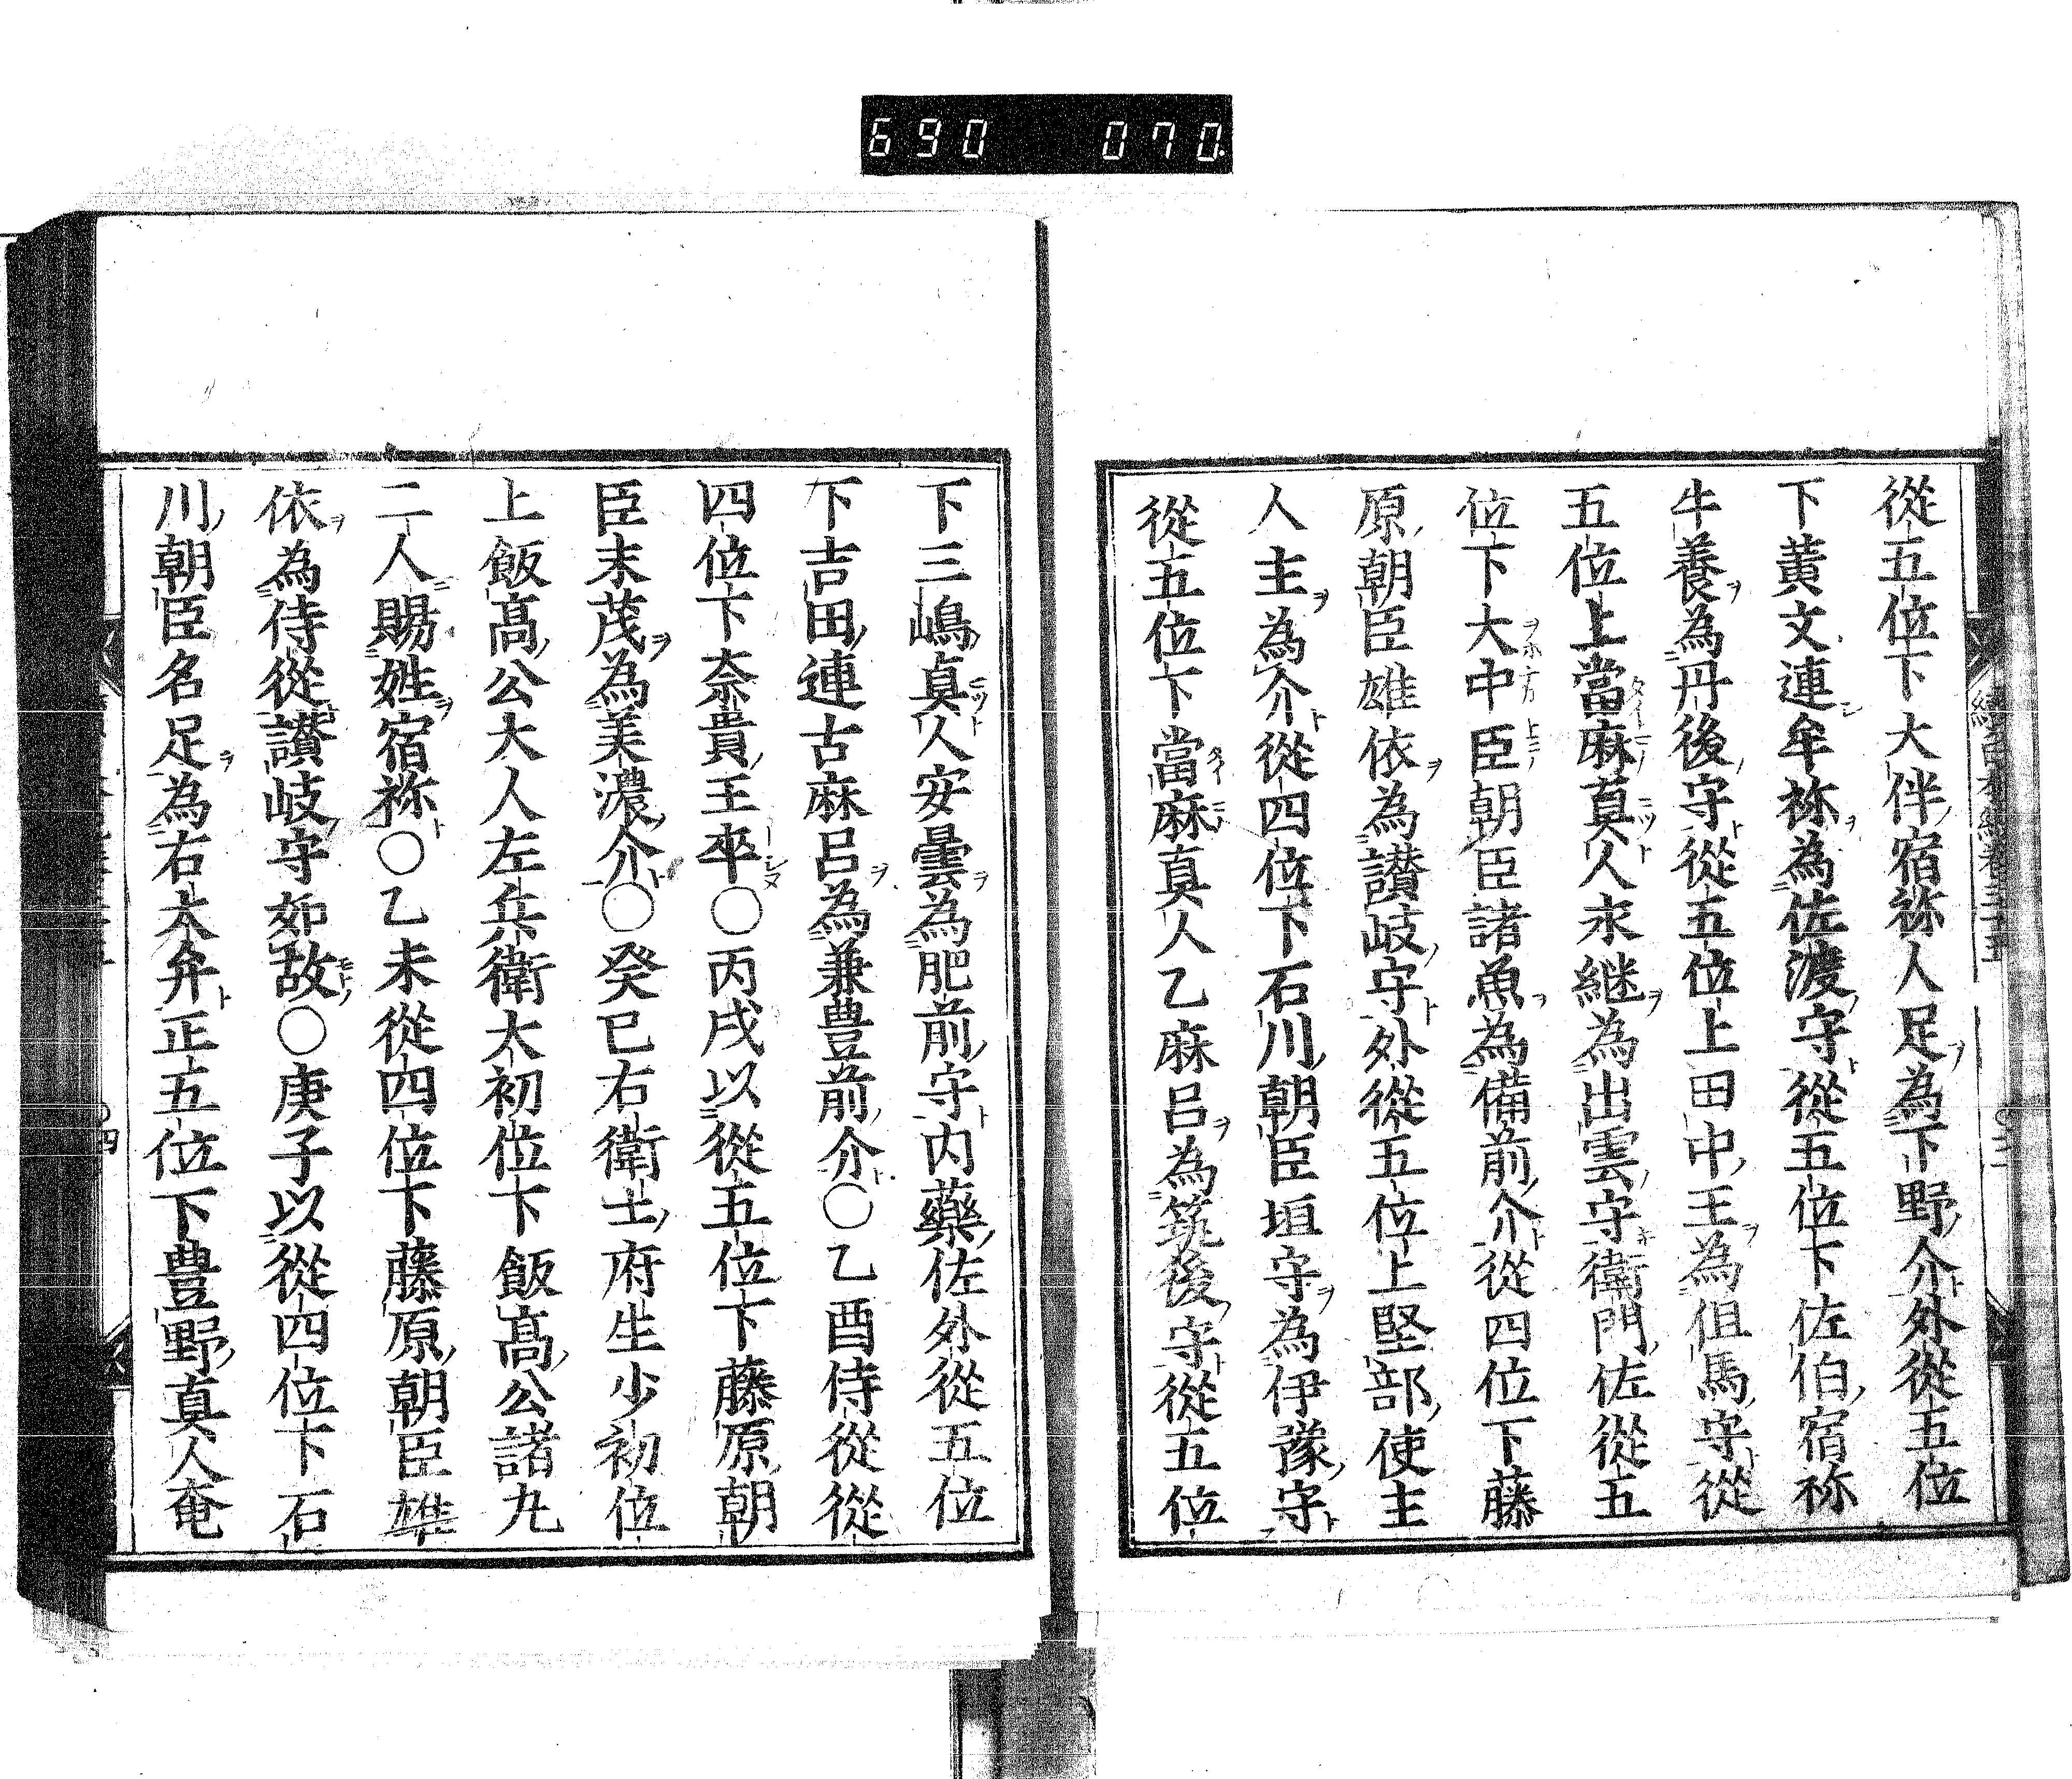 690 070
從五位下大伴宿祢人足為下野介外從五位
下黄文連牟祢為佐渡守從五位下佐伯宿祢
牛養為丹後守從五位上田中王為伹馬守從
五位上當麻真人永継為出雲守衛門佐從五
位下大中臣朝臣諸魚為備前介從四位下藤
原朝臣雄依為讃岐守外從五位上堅部使主
人主為介從四位下石川朝臣垣守為伊豫守
從五位下當麻真人乙麻呂為筑後守從五位
下三嶋真人安曇為肥前守内藥佐外從五位
下吉田連古麻呂為兼豊前介○乙酉侍從從
四位下奈貴王卒○丙戌以從五位下藤原朝
臣末茂為美濃介○癸巳右衛士府生少初位
上飯髙公大人左兵衛大初位下飯髙公諸九
二人賜姓宿祢○乙未從四位下藤原朝臣雄
依為侍從讃岐守如故○庚子以從四位下石
川朝臣名足為右大弁正五位下豊野真人奄
四